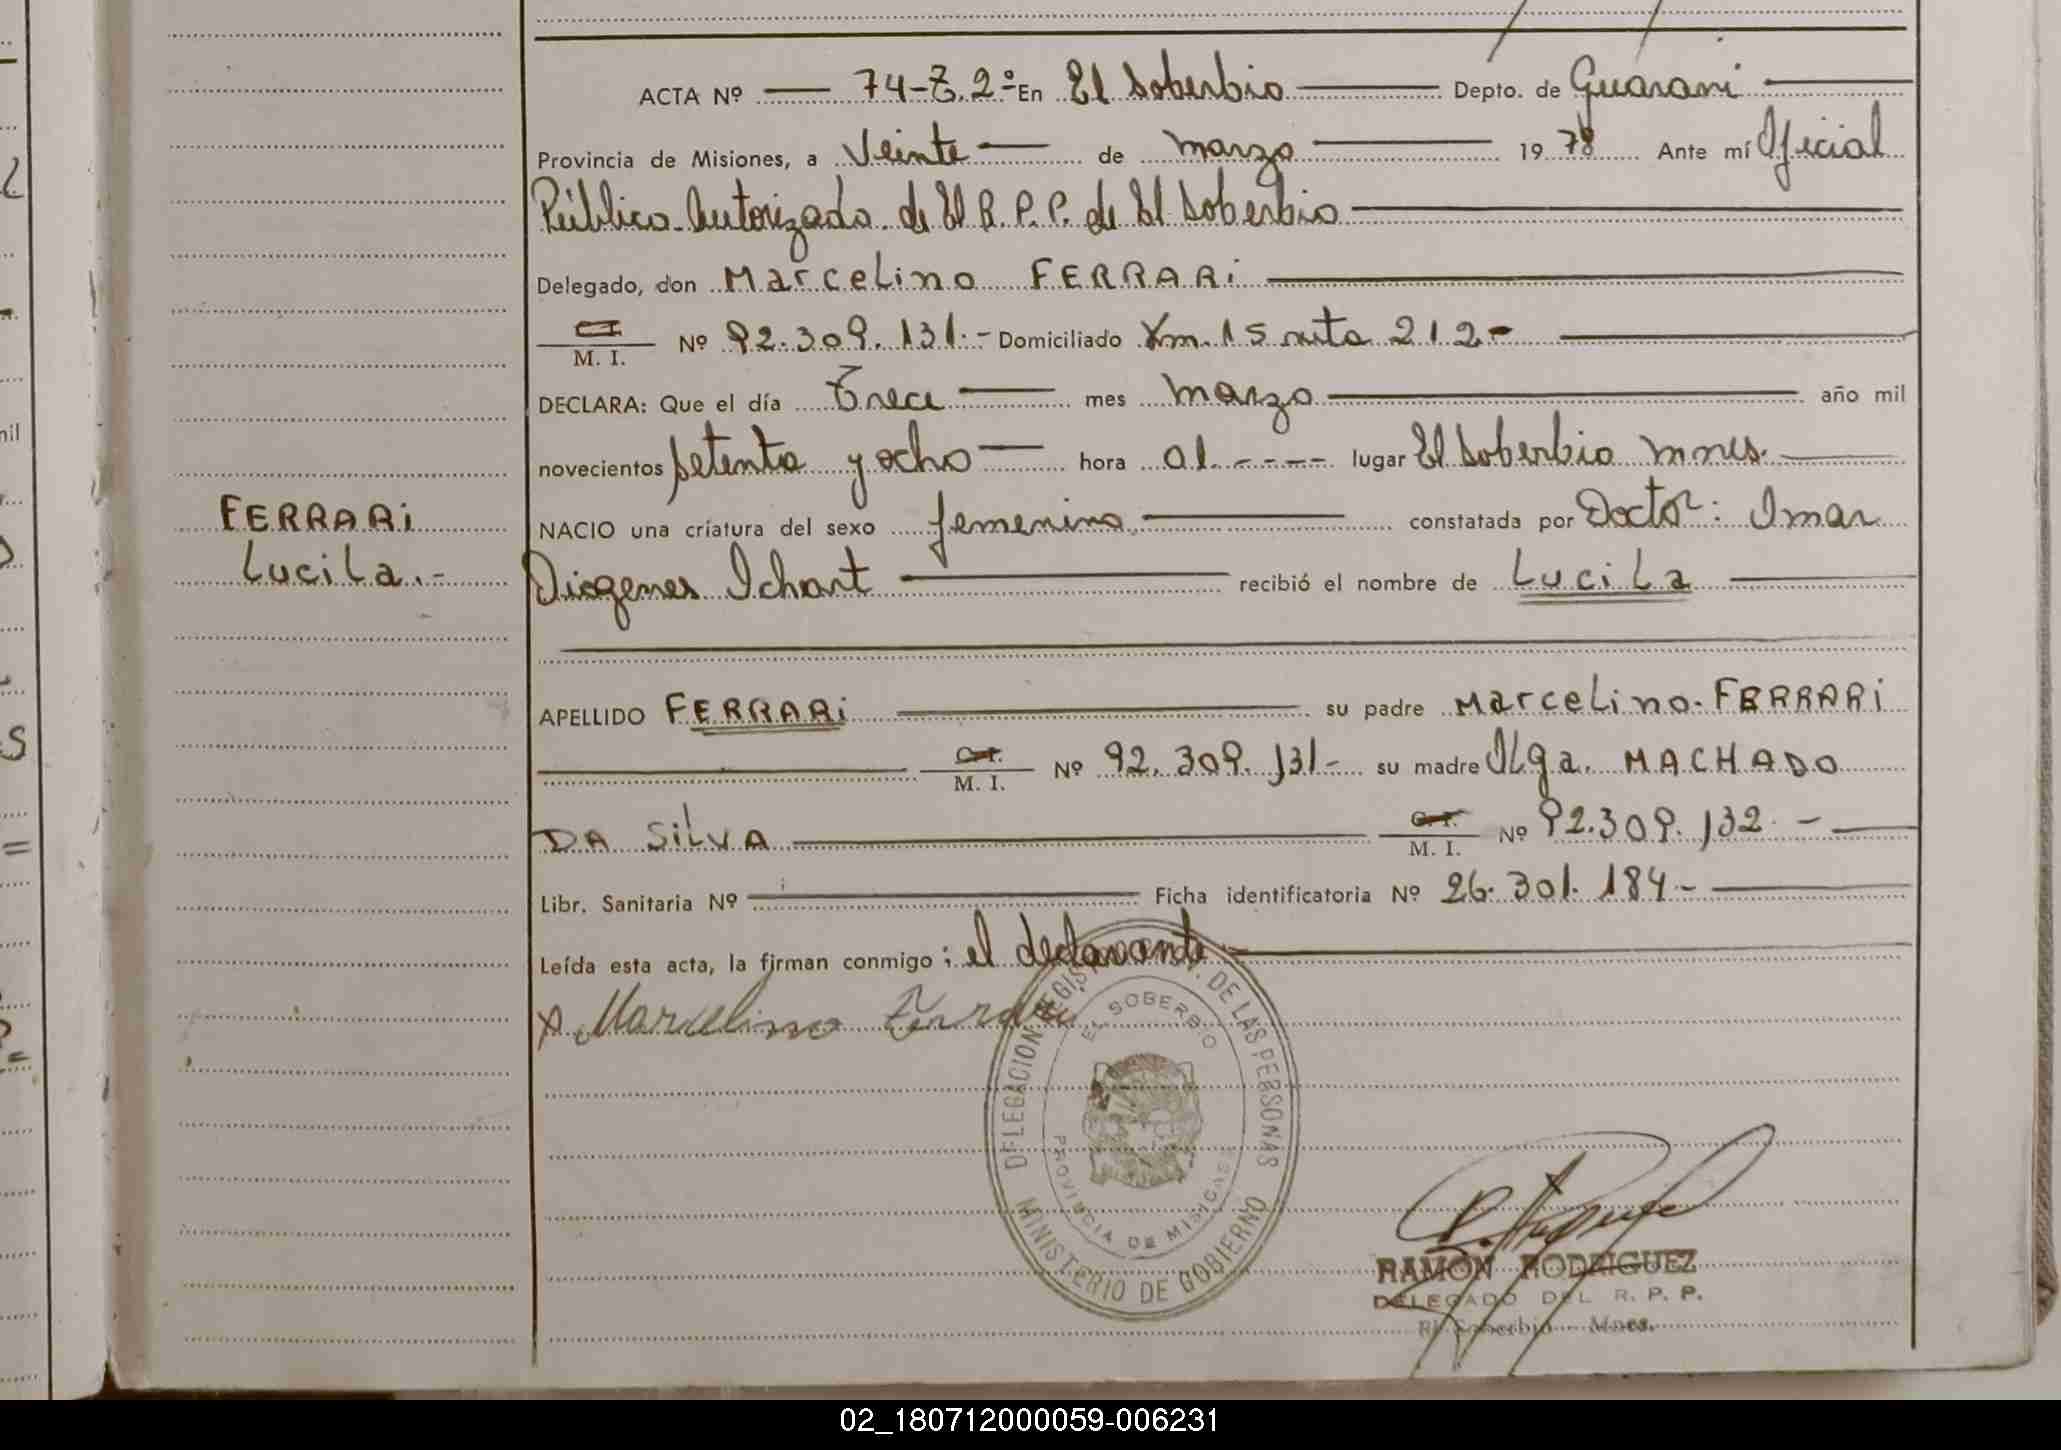 ACTA Nº 74-T.2º En El Soberbio Depto. de Guarani
Provincia de Misiones, a Veinte de marzo 1978 Ante mí Oficial
Público Autorizado de El R.P.P. de El Soberbio
Delegado, don Marcelino FERRARi
C.I.
M. I. Nº 92.309.131.- Domiciliado Km. 15 ruta 212-
DECLARA: Que el día Trece mes marzo año mil
novecientos setenta y ocho hora 01.---- lugar El Soberbio Mnes.
NACIO una críatura del sexo femenino constatada por Doctor: Imar
Diogenes Ichart recibió el nombre de LuciLa
FERRARi
LuciLa.-
APELLIDO FERRARi su padre MarceLino. FERRARi
C.I.
M. I. Nº 92.309.131- su madre OLga. MACHADO
DA SiLVA C.I.
M. I. Nº 92.309.132.-
Libr. Sanitaria Nº Ficha identificatoria Nº 26.301.184.-
Leída esta acta, la firman conmigo ; el declarante
x Marcelino Ferrari
DELEGACION DE LAS PERSONAS
EL SOBERBIO
PROVINCIA DE MISIONES
MINISTERIO DE GOBIERNO
RAMON RODRIGUEZ
DELEGADO DEL R. P. P.
El Soberbio - Mnes.
02_180712000059-006231